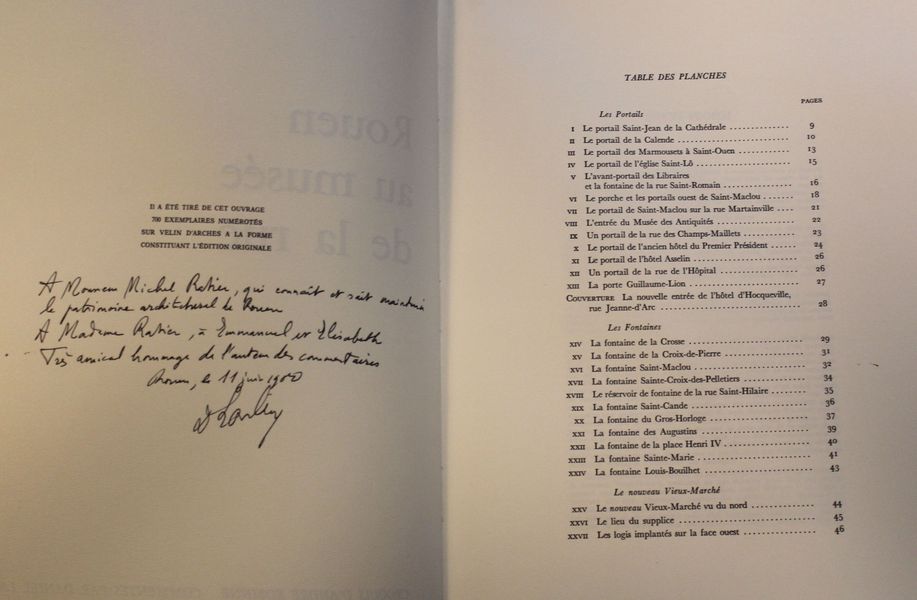 IL A ÉTÉ TIRÉ DE CET OUVRAGE
700 EXEMPLAIRES NUMÉROTÉS
SUR VELIN D'ARCHES A LA FORME
CONSTITUANT L'ÉDITION ORIGINALE
A Monsieur Michel Ratier, qui connaît et sait maintenir
le patrimoine architectural de Rouen
A Madame Ratier, à Emmanuel et Elisabeth
Très amical hommage de l'auteur des commentaires
Rouen, le 11 juin 1980
TABLE DES PLANCHES
PAGES
Les Portails
I Le portail Saint-Jean de la Cathédrale 9
II Le portail de la Calende 10
III Le portail des Marmousets à Saint-Ouen 13
IV Le portail de l'église Saint-Lô 15
V L'avant-portail des Libraires
et la fontaine de la rue Saint-Romain 16
VI Le porche et les portails ouest de Saint-Maclou 18
VII Le portail de Saint-Maclou sur la rue Martainville 21
VIII L'entrée du Musée des Antiquités 22
IX Un portail de la rue des Champs-Maillets 23
X Le portail de l'ancien hôtel du Premier Président 24
XI Le portail de l'hôtel Asselin 26
XII Un portail de la rue de l'Hôpital 26
XIII La porte Guillaume-Lion 27
COUVERTURE La nouvelle entrée de l'hôtel d'Hocqueville,
rue Jeanne-d'Arc 28
Les Fontaines
XIV La fontaine de la Crosse 29
XV La fontaine de la Croix-de-Pierre 31
XVI La fontaine Saint-Maclou 32
XVII La fontaine Sainte-Croix-des-Pelletiers 34
XVIII Le réservoir de fontaine de la rue Saint-Hilaire 35
XIX La fontaine Saint-Cande 36
XX La fontaine du Gros-Horloge 37
XXI La fontaine des Augustins 39
XXII La fontaine de la place Henri IV 40
XXIII La fontaine Sainte-Marie 41
XXIV La fontaine Louis-Bouilhet 43
Le nouveau Vieux-Marché
XXV Le nouveau Vieux-Marché vu du nord 44
XXVI Le lieu du supplice 45
XXVII Les logis implantés sur la face ouest 46